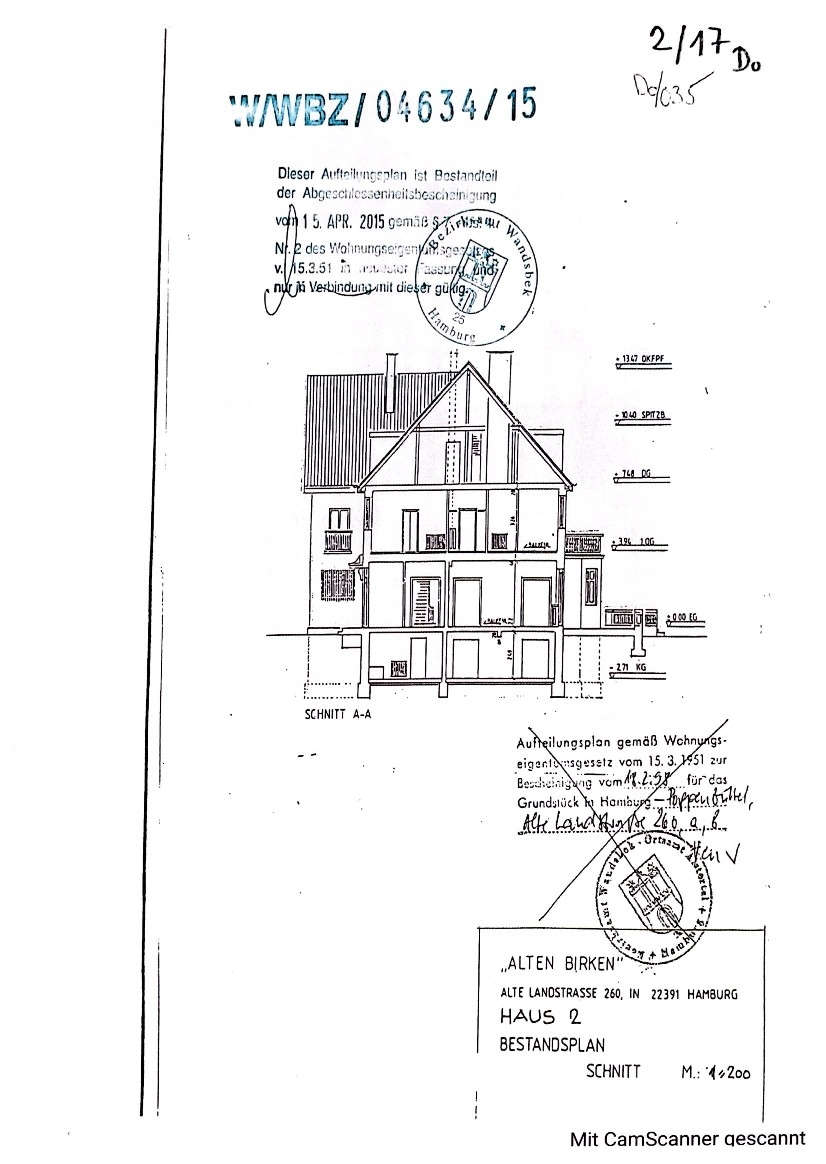 2/17 Do
W/WBZ/04634/15
Dieser Aufteilungsplan ist Bestandteil
der Abgeschlossenheitsbescheinigung
vom 15. APR. 2015 gemäß §
Nr. 2 des Wohnungseigentumsgesetzes
v. 15.3.51 in neuester Fassung und
nur in Verbindung mit dieser gültig.
Bezirksamt Wandsbek
25
Hamburg
+ 13.47 OKFPF
+ 10.40 SPITZB
+ 7.48 DG
+ 3.94 1.OG
± 0.00 EG
- 2.71 KG
SCHNITT A-A
Aufteilungsplan gemäß Wohnungs-
eigentumsgesetz vom 15. 3. 1951 zur
Bescheinigung vom 18.2.98 für das
Grundstück in Hamburg - Poppenbüttel,
Alte Landstraße 260, a, b
Bezirksamt Wandsbek · Ortsamt Alstertal * Hamburg *
„ALTEN BIRKEN“
ALTE LANDSTRASSE 260, IN 22391 HAMBURG
HAUS 2
BESTANDSPLAN
SCHNITT M.: 1:200
Mit CamScanner gescannt